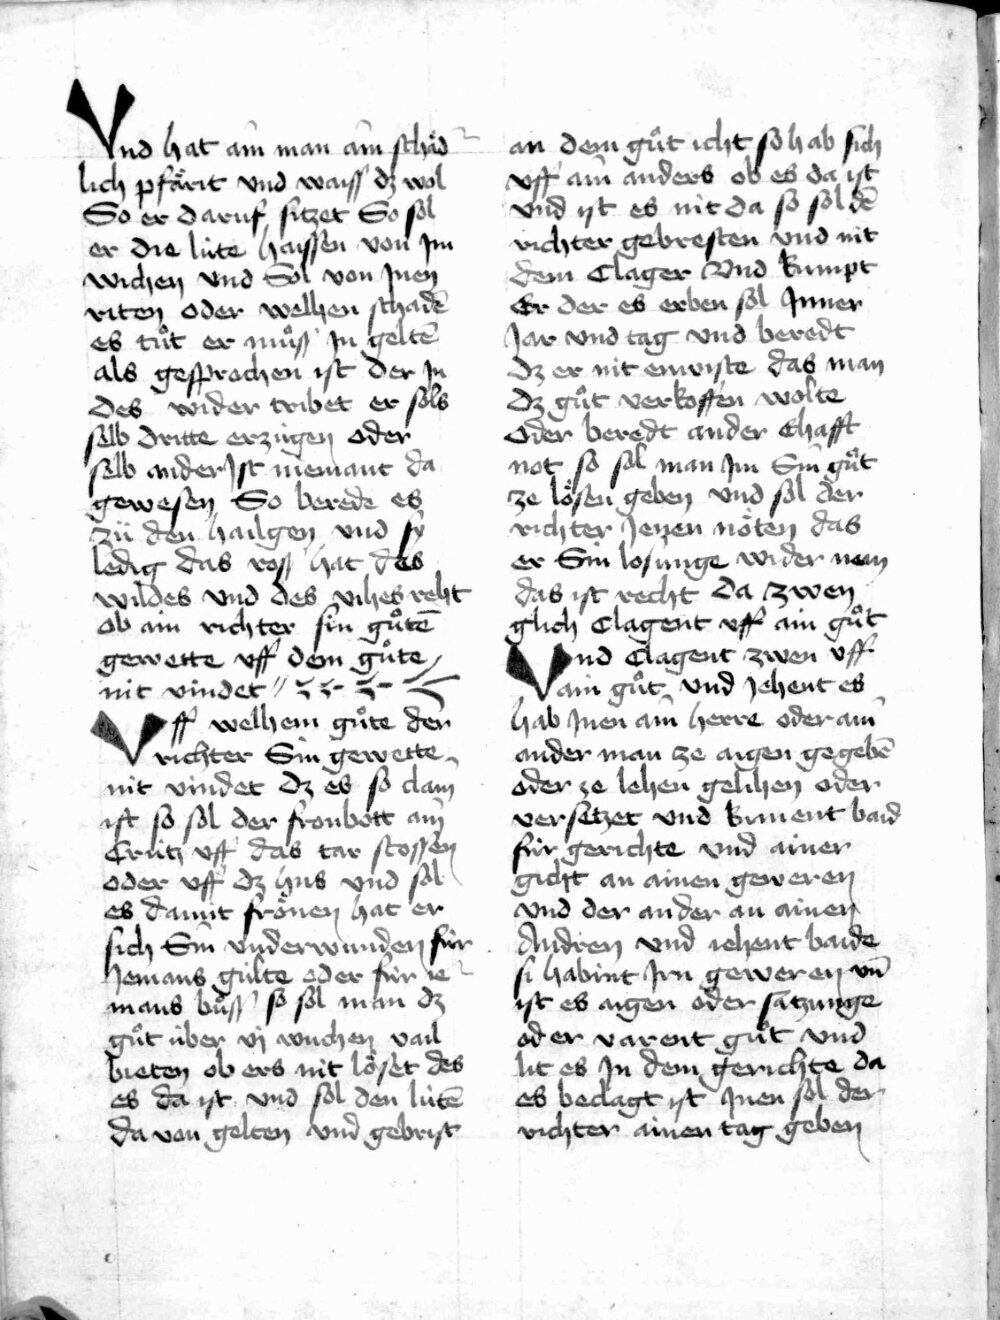 Vnd hat ain̄ man ain̄ schäd
lich pfärit vnd waiss dz wol
So er daruf sitzet So sol
er die lüte haissen von Jm
wichen vnd Sol von Jnen
riten oder welhen schadē
es tůt er můss Jn geltē
als gesprochen ist der Jn
des wider tribet er sols
selb dritte erzùgen oder
selb ander Jst niemant da
gewesen So berede es
zü den hailgen vnd sy
ledig das ross hat des
wildes vnd des vihes reht
ob ain richter sin gůtē
gewette vff dem gůte
nit vindet
Vff welhem gůte der
richter Sin gewette
nit vindet dz es so clain̄
ist so sol der fronbott ain̄
Crütz vff das tar stossen
oder vff dz hus vnd sol
es damit frönen hat er
sich Sin̄ vnderwunden für
Jemans gülte oder für ie
mans bůss so sol man dz
gůt über vj wuchen vail
bieten ob ers nit löset des
es da ist vnd sol den lütē
da von gelten vnd gebrist
an dem gůt icht so hab sich
vff ain̄ anders ob es da ist
vnd ist es nit da so sol dē
richter gebresten vnd nit
dem Clager Vnd kumpt
Er der es erben sol Jnner
Jar vnd tag vnd beredt
dz er nit enwiste das man
dz gůt verkoffen wolte
Oder beredt ander Ehafft
not so sol man Jm Sin̄ gůt
ze lösen geben vnd sol der
richter Jenen nöten das
er Sin losunge wider nem
das ist recht Da zwen
glich Clagent vff ain gůt
Vnd Clagent zwen vff
ain gůt vnd Jehent es
hab Jnen ain̄ herre oder ain̄
ander man ze aigen gegebē
oder ze lehen gelihen oder
versetzet vnd kument baid
für gerichte vnd ainer
gicht an ainen geweren
vnd der ander an ainen
Andren vnd iehent baide
si habint Jrn geweren vn̄
ist es aigen oder satzunge
oder varent gůt vnd
lit es Jn dem gerichte da
es beclagt ist Jnen sol der
richter ainen tag geben